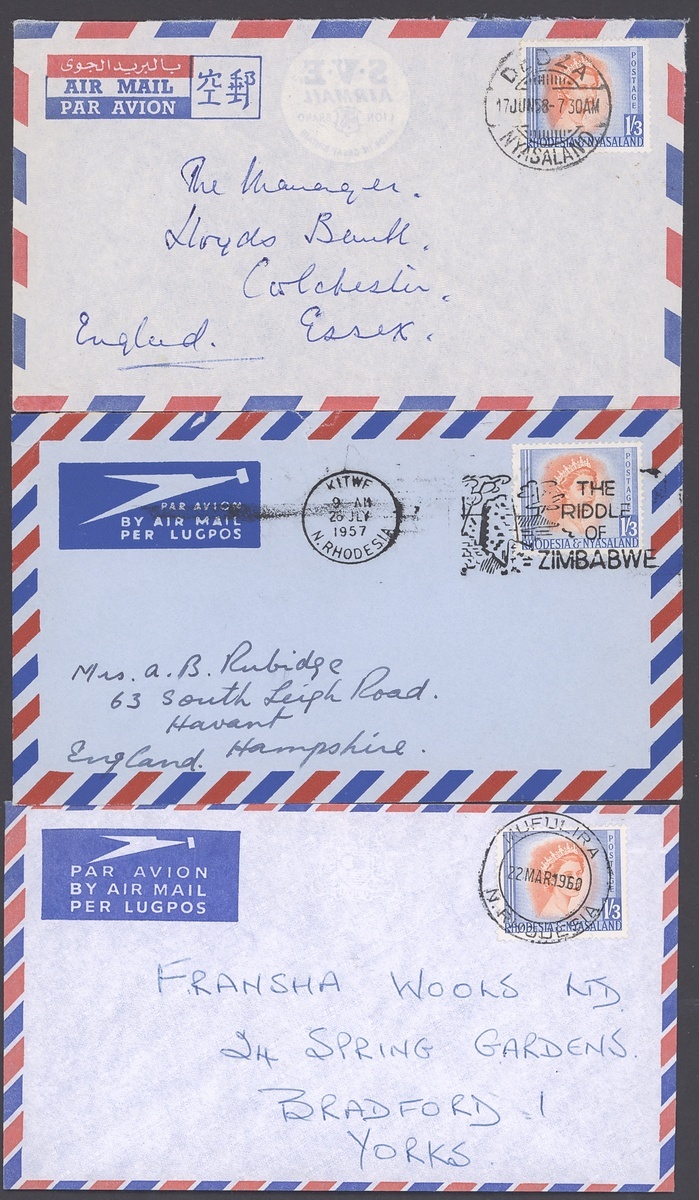 بالبريد الجوى
AIR MAIL
PAR AVION
空郵
S.V.E
AIRMAIL
LION BRAND
DEDZA
17 JUN 58 - 7 30AM
NYASALAND
POSTAGE
1/3
RHODESIA & NYASALAND
The Manager.
Lloyds Bank.
Colchester.
England. Essex.
PAR AVION
BY AIR MAIL
PER LUGPOS
KITWE
9 - AM
26 JLY
1957
N. RHODESIA
THE
RIDDLE
OF
ZIMBABWE
POSTAGE
1/3
RHODESIA & NYASALAND
Mrs. A. B. Rubidge
63 South Leigh Road.
Havant
England. Hampshire.
PAR AVION
BY AIR MAIL
PER LUGPOS
MUFULIRA
22 MAR 1960
N. RHODESIA
POSTAGE
1/3
RHODESIA & NYASALAND
FRANSHA WOOLS LTD.
24 SPRING GARDENS.
BRADFORD. 1
YORKS.